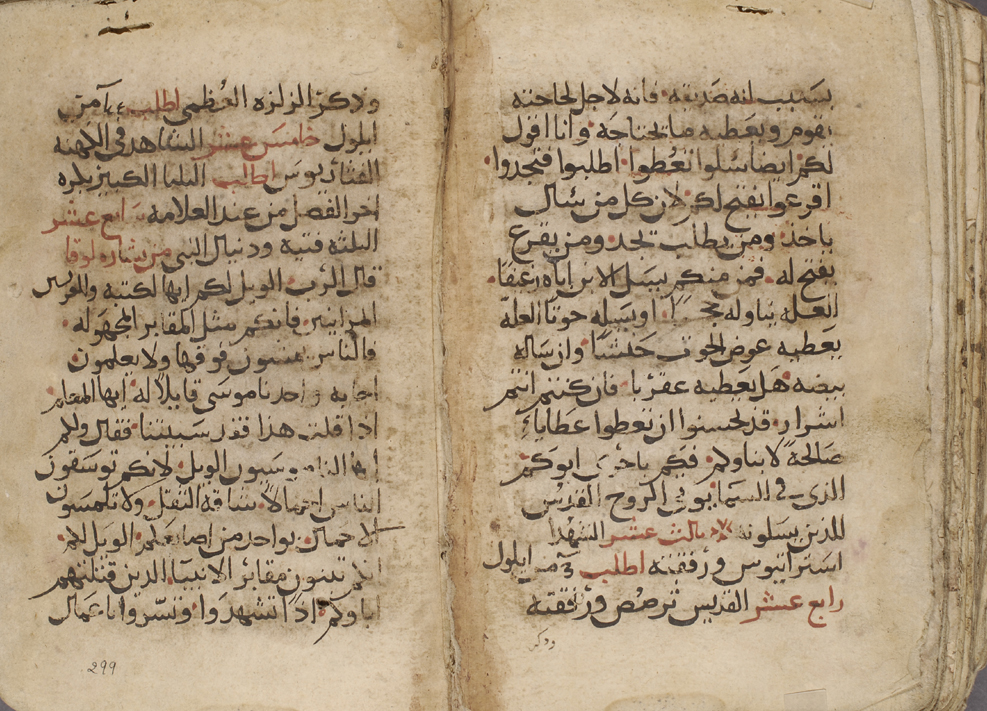 بسبب انه صديقه فانه لاجل لحاجته
يقوم ويعطيه ما يحتاجه وانا اقول
لكم ايضا سلوا تعطوا اطلبوا فتجدوا
اقرعوا يفتح لكم لان كل من سال
ياخذ ومن يطلب يجد ومن يقرع
يفتح له فمن منكم يسل الابن اباه رغيفا
العله يناوله حجرا او يسله حوتا العله
يعطيه عوض الحوت حنشا وان ساله
بيضه هل يعطيه عقربا فان كنتم انتم
اشرار قد تحسنوا ان تعطوا عطايا
صالحة لابناوكم فكم ابوكم
الذي في السما يوتي الروح القدس
للذين يسلونه ثالث عشر الشهدا
استراتيوس ورفقته اطلب من ايلول
رابع عشر القديس ترصص ورفقته
وذكر
وذكر الزلزله العظمى اطلب من
ايلول خامس عشر الشاهد في الكهنه
الفتاريوس اطلب البابا الكبير بجره
اخر الفصل من عند العلامه سابع عشر
الثلثه فتية ودنيال النبي من بشاره لوقا
قال الرب الويل لكم ايها لكتبة والفريس
المرايين فانكم مثل المقابر المجهوله
والناس يمشون فوقها ولا يعلمون
اجابه واحد ناموسي قايلا له ايها المعلم
اذا قلت هذا فقد سببتنا فقال ولكم
ايها الناموسيون الويل لانكم توسقون
الناس احمالا شاقة الثقل ولا تلمسون
الاحمال بواحد من اصابعكم الويل لكم
انكم تبنون مقابر الانبيا الذين قتلتهم
اباوكم اذا تشهدوا وتسروا باعمال
299